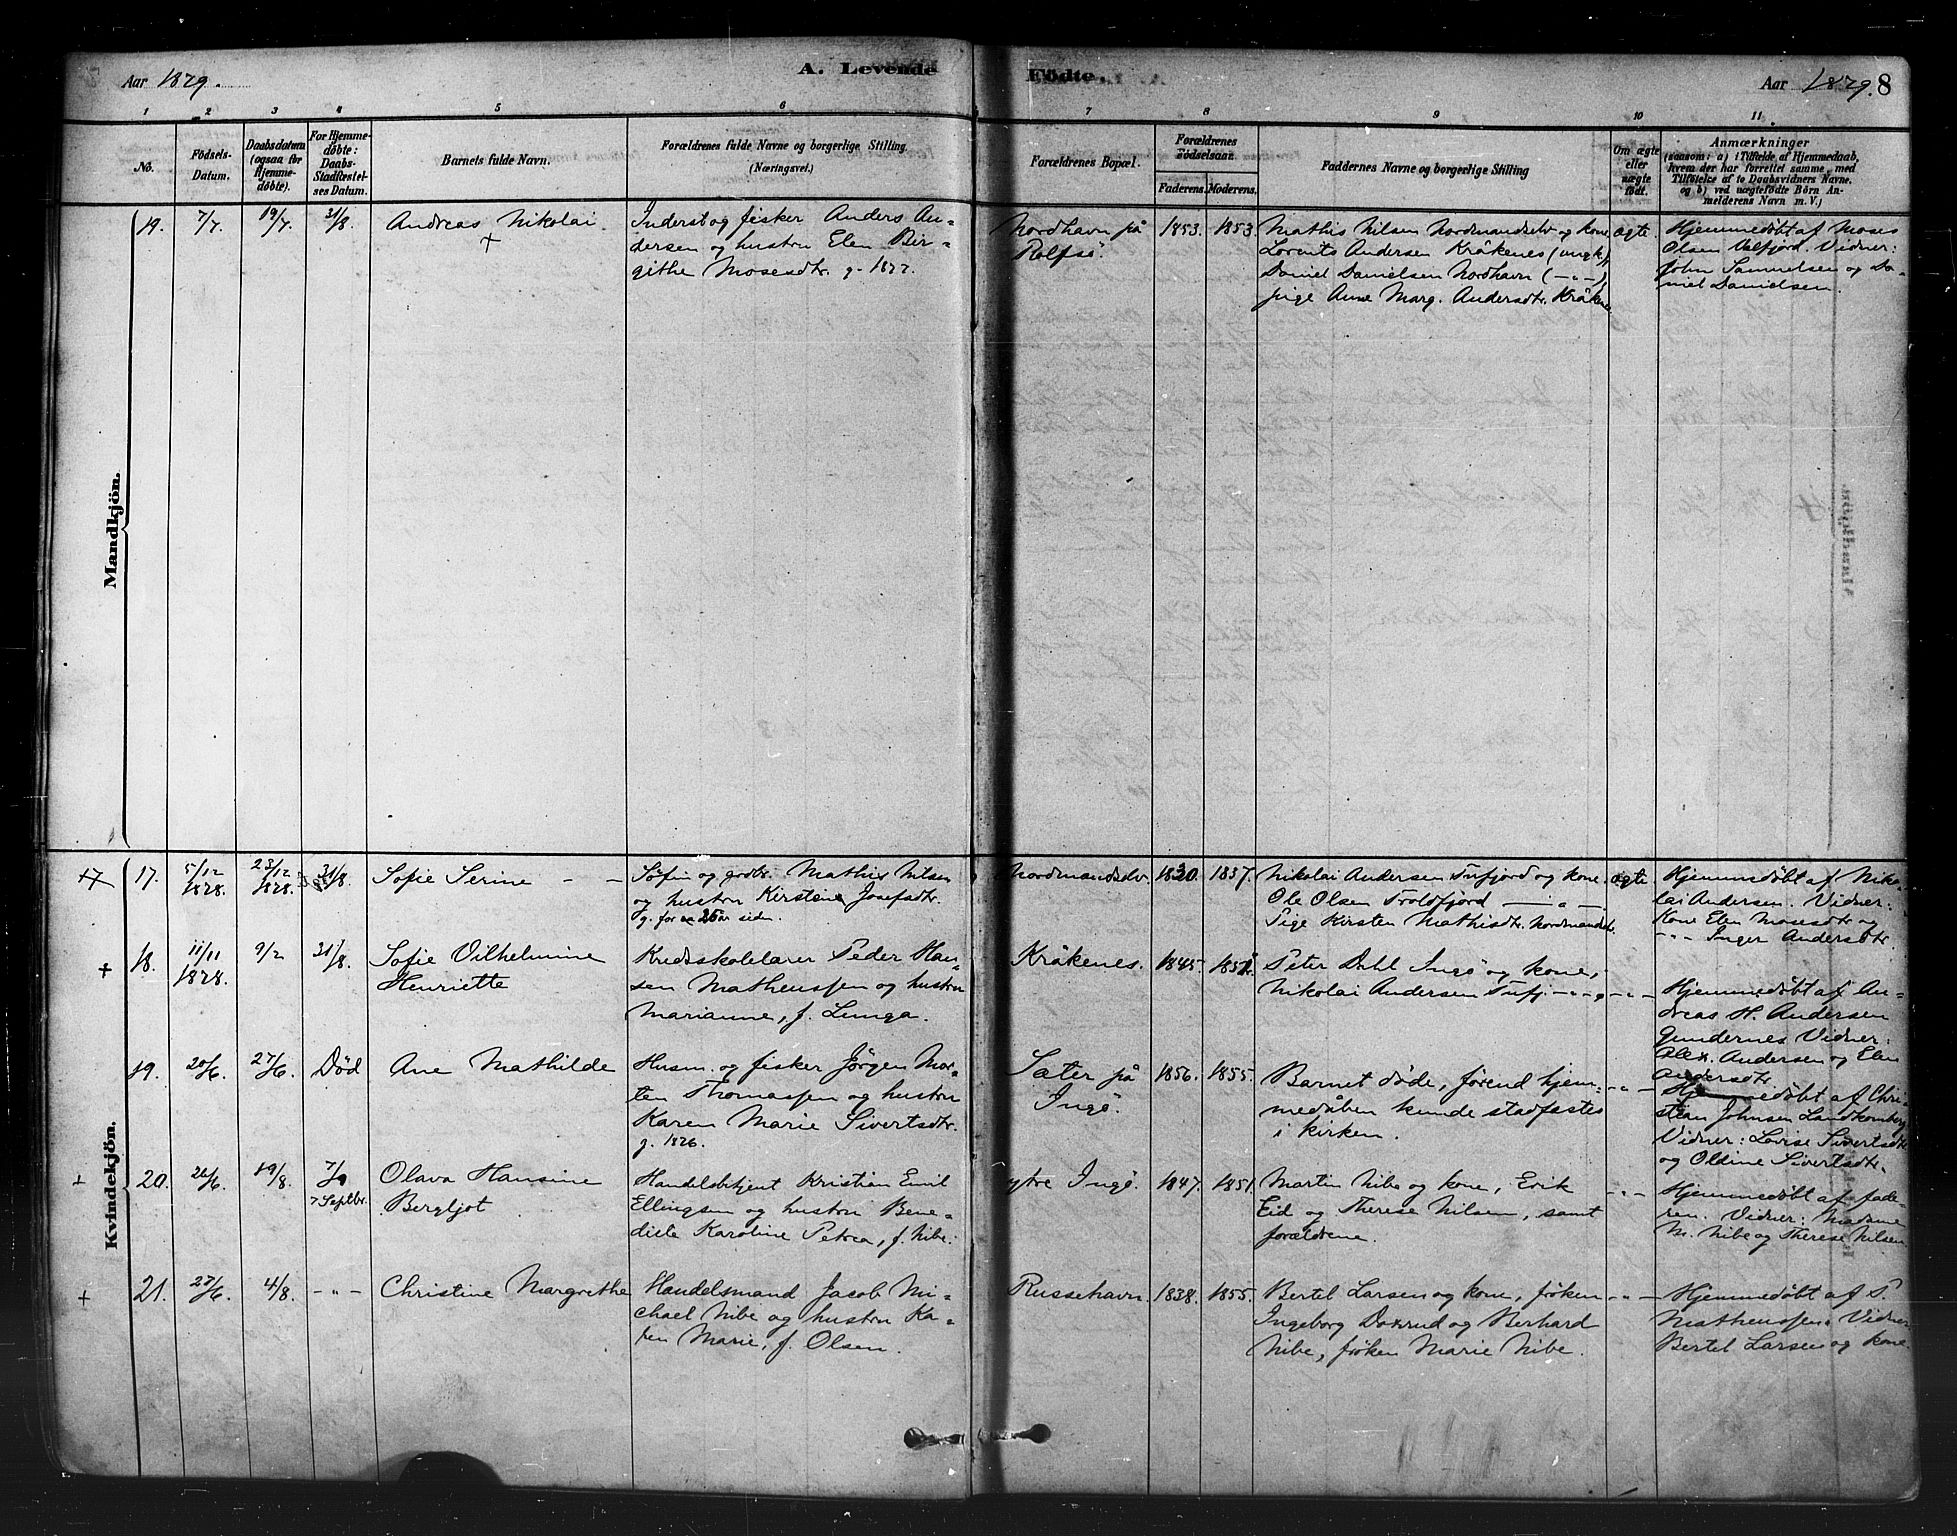 Aar 1879.
A. Levende
Födte.
Aar 1879. 8
1 2 3 4 5 6 7 8 9 10 11
No.
Födsels-
Datum.
Daabsdatum
(ogsaa for
Hjemme-
döbte).
For Hjemme-
döbte:
Daabs-
Stadfæstel-
ses Datum.
Barnets fulde Navn.
Forældrenes fulde Navne og borgerlige Stilling.
(Næringsvei.)
Forældrenes Bopæl.
Forældrenes
Födselsaar.
Faderens. Moderens.
Faddernes Navne og borgerlige Stilling
Om ægte
eller
uægte
födt.
Anmærkninger
(saasom: a) i Tilfælde af Hjemmedaab,
hvem der har forrettet samme, med
Tilföielse af to Daabsvidners Navne,
og b) ved uægtefödte Börn An-
melderens Navn m. V.)
Mandkjön.
19. 7/7 19/7. 31/8. Andreas Nikolai.
+
Inderst og fisker Anders An-
dersen og hustru Elen Bir-
githe Mosesdtr. g. 1877.
Nordhavn på
Rolfsö.
1853. 1853.
Mathis Nilsen Nordmandselv og kone,
Lorents Andersen Kråkenes (ungk),
Daniel Danielsen Nordhavn (-"-),
pige Anne Marg. Andersdtr. Kråkene
ægte.
Hjemmedøbt af Moses
Olsen Valfjord. Vidner:
John Samuelsen og Da-
niel Danielsen.
Kvindekjön.
17 17. 5/12 1878. 23/12 1878. 31/8. Sofie Serine - -
Søfin og grdbr. Mathis Nilsen
og hustru Kirstine Josefsdtr.
g. for ca 25 år siden.
Nordmandselv. 1820. 1837.
Nikolai Andersen Tufjord og kone.
Ole Olsen Troldfjord - " -
Pige Kirsten Mathisdtr. Nordmandselv.
ægte
Hjemmedøbt af Niko-
lai Andersen. Vidner:
Kone Elen Mosesdtr og
-"- Inger Andersdtr.
+ 18. 11/11 1878. 9/2 31/8. Sofie Vilhelmine
Henriette
Kredsskolelærer Peder Han-
sen Matheussen og hustru
Marianne, f. Lunga.
Kråkenes. 1845.
Peter Dahl Ingö og kone,
Nikolai Andersen Tufj. -"-
-"-
Hjemmedøbt af An-
dreas H. Andersen
Gundernes Vidner:
Alex. Andersen og Elen
Andersdtr.
19. 20/6. 27/6. Död Ane Mathilde
Husm. og fisker Jörgen Mor-
ten Thomassen og hustru
Karen Marie Sivertsdtr.
g. 1876.
Sæter på
Ingö.
1856. 1855.
Barnet døde, førend hjem-
medåben kunde stadfæstes
i kirken.
-"-
Hjemmedøbt af Chri-
stian Johnsen
Vidner: Lovise Sivertsdtr
og Oldine Sivertsdtr.
+ 20. 26/6. 19/8. 7/9
7 Septbr.
Olava Hansine
Bergljot
Handelsbetjent Kristian Emil
Ellingsen og hustru Bene-
dicte Karoline Petrea, f. Nibe.
ytre Ingö. 1847. 1851.
Martin Nibe og kone, Erik
Eid og Therese Nilsen, samt
forældrene.
-"-
Hjemmedøbt af fade-
ren. Vidner: Madame
M. Nibe og Therese Nilsen
+ 21. 27/6. 4/8. -"- Christine Margrethe
Handelsmand Jacob Mi-
chael Nibe og hustru Ka-
ren Marie, f. Olsen.
Russehavn. 1838. 1855.
Bertel Larsen og kone, frøken
Ingeborg og Berhard
Nibe, frøken Marie Nibe.
-"-
Hjemmedøbt af P.
Matheussen. Vidner
Bertel Larsen og kone.